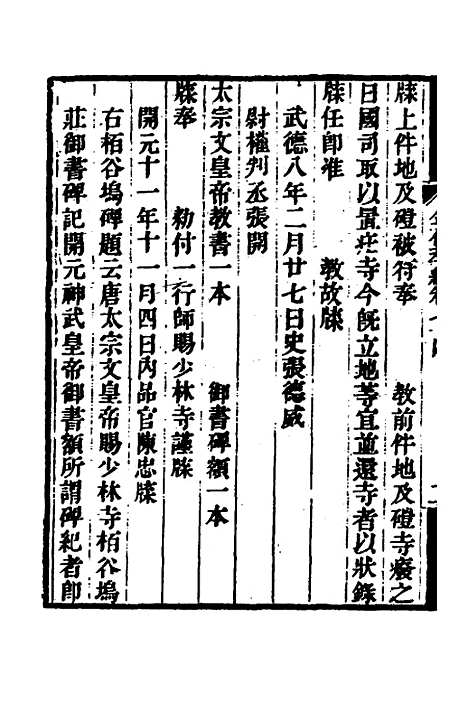 牒上件地及磑被符奉　教前件地及磑寺癈之
日國司取以置莊寺今旣立地等宜並還寺者以狀錄
牒任卽准　教故牒
武德八年二月廿七日史張德威
尉權判丞張開
太宗文皇帝教書一本　御書碑額一本
牒奉　勅付一行師賜少林寺謹牒
開元十一年十一月四日內品官陳忠牒
右栢谷塢碑題云唐太宗文皇帝賜少林寺栢谷塢
莊御書碑記開元神武皇帝御書額所謂碑紀者卽